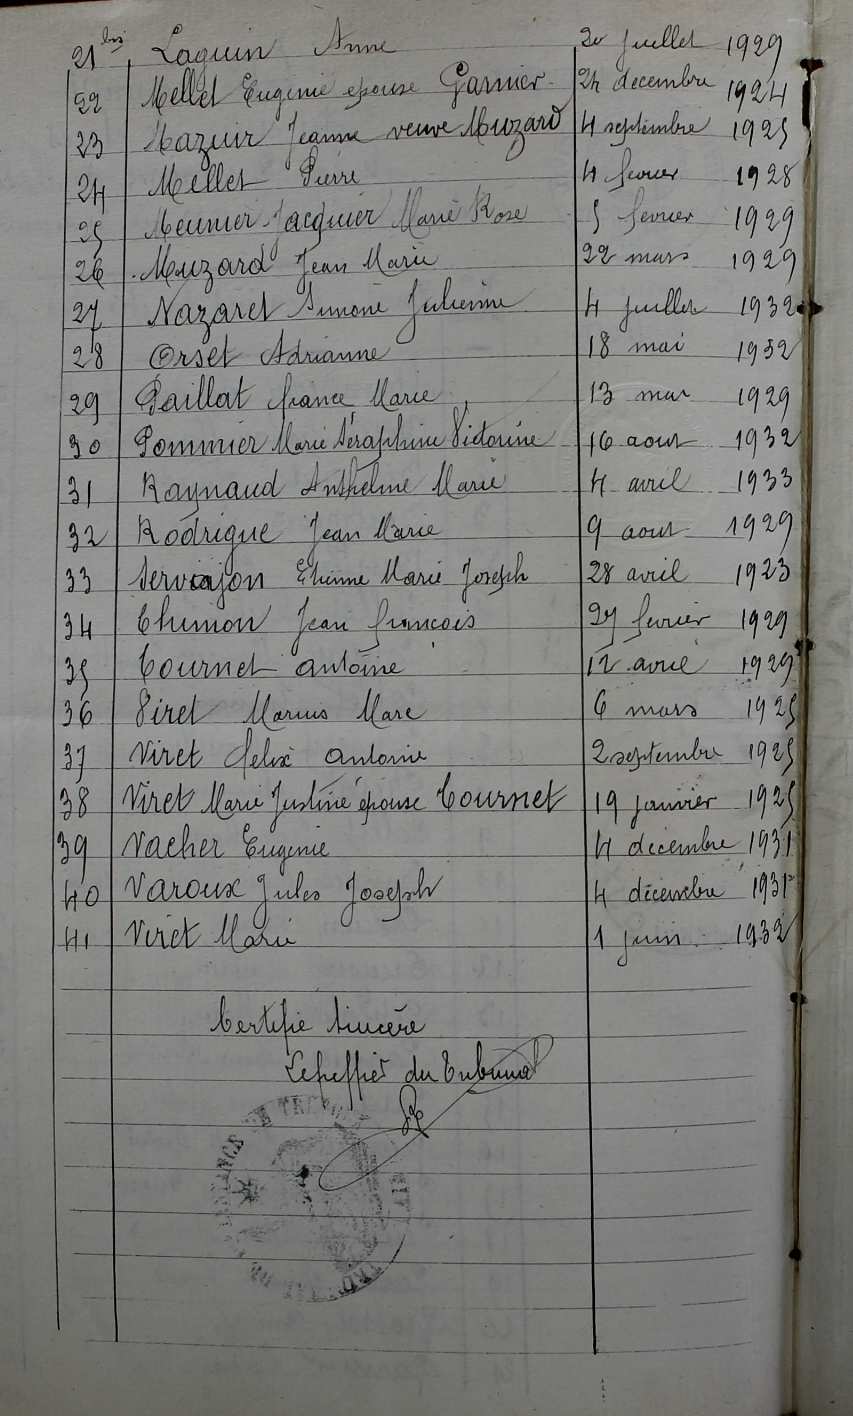 21 bis Laguin Anne 20 juillet 1929
22 Mellet Eugenie epouse Garnier 24 decembre 1924
23 Mazuir Jeanne veuve Muzard 4 septembre 1925
24 Mellet Pierre 4 fevrier 1928
25 Meunier-Jacquier Marie Rose 5 fevrier 1929
26 Muzard Jean Marie 22 mars 1929
27 Nazaret Simone Julienne 4 juillet 1932
28 Orset Adrianne 18 mai 1932
29 Paillat france Marie 13 mar 1929
30 Pommier Marie Séraphine Victorine 16 aout 1932
31 Raynaud Anthelme Marie 4 avril 1933
32 Rodrigue Jean Marie 9 aout 1929
33 Servajon Etienne Marie Joseph 28 avril 1923
34 Thimon Jean francois 27 fevrier 1929
35 Tournet antoine 12 avril 1929
36 Viret Marius Marc 6 mars 1925
37 Viret felix antonie 2 septembre 1925
38 Viret Marie Justine épouse Tournet 19 janvier 1925
39 Vacher Eugenie 4 decembre 1931
40 Varoux Jules Joseph 4 décembre 1931
41 Viret Marie 1 juin 1932
Certifié sincère
Le greffier du Tribunal